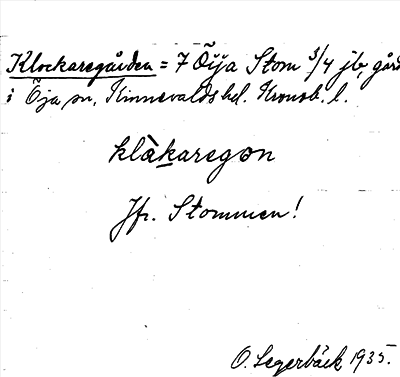 Klockaregården = 7 Öija Stom 3/4 jb, gård
i Öja sn, Kinnevalds hd. Kronob. l.
klàkaregɷn
Jfr. Stommen!
O. Segerbäck 1935.